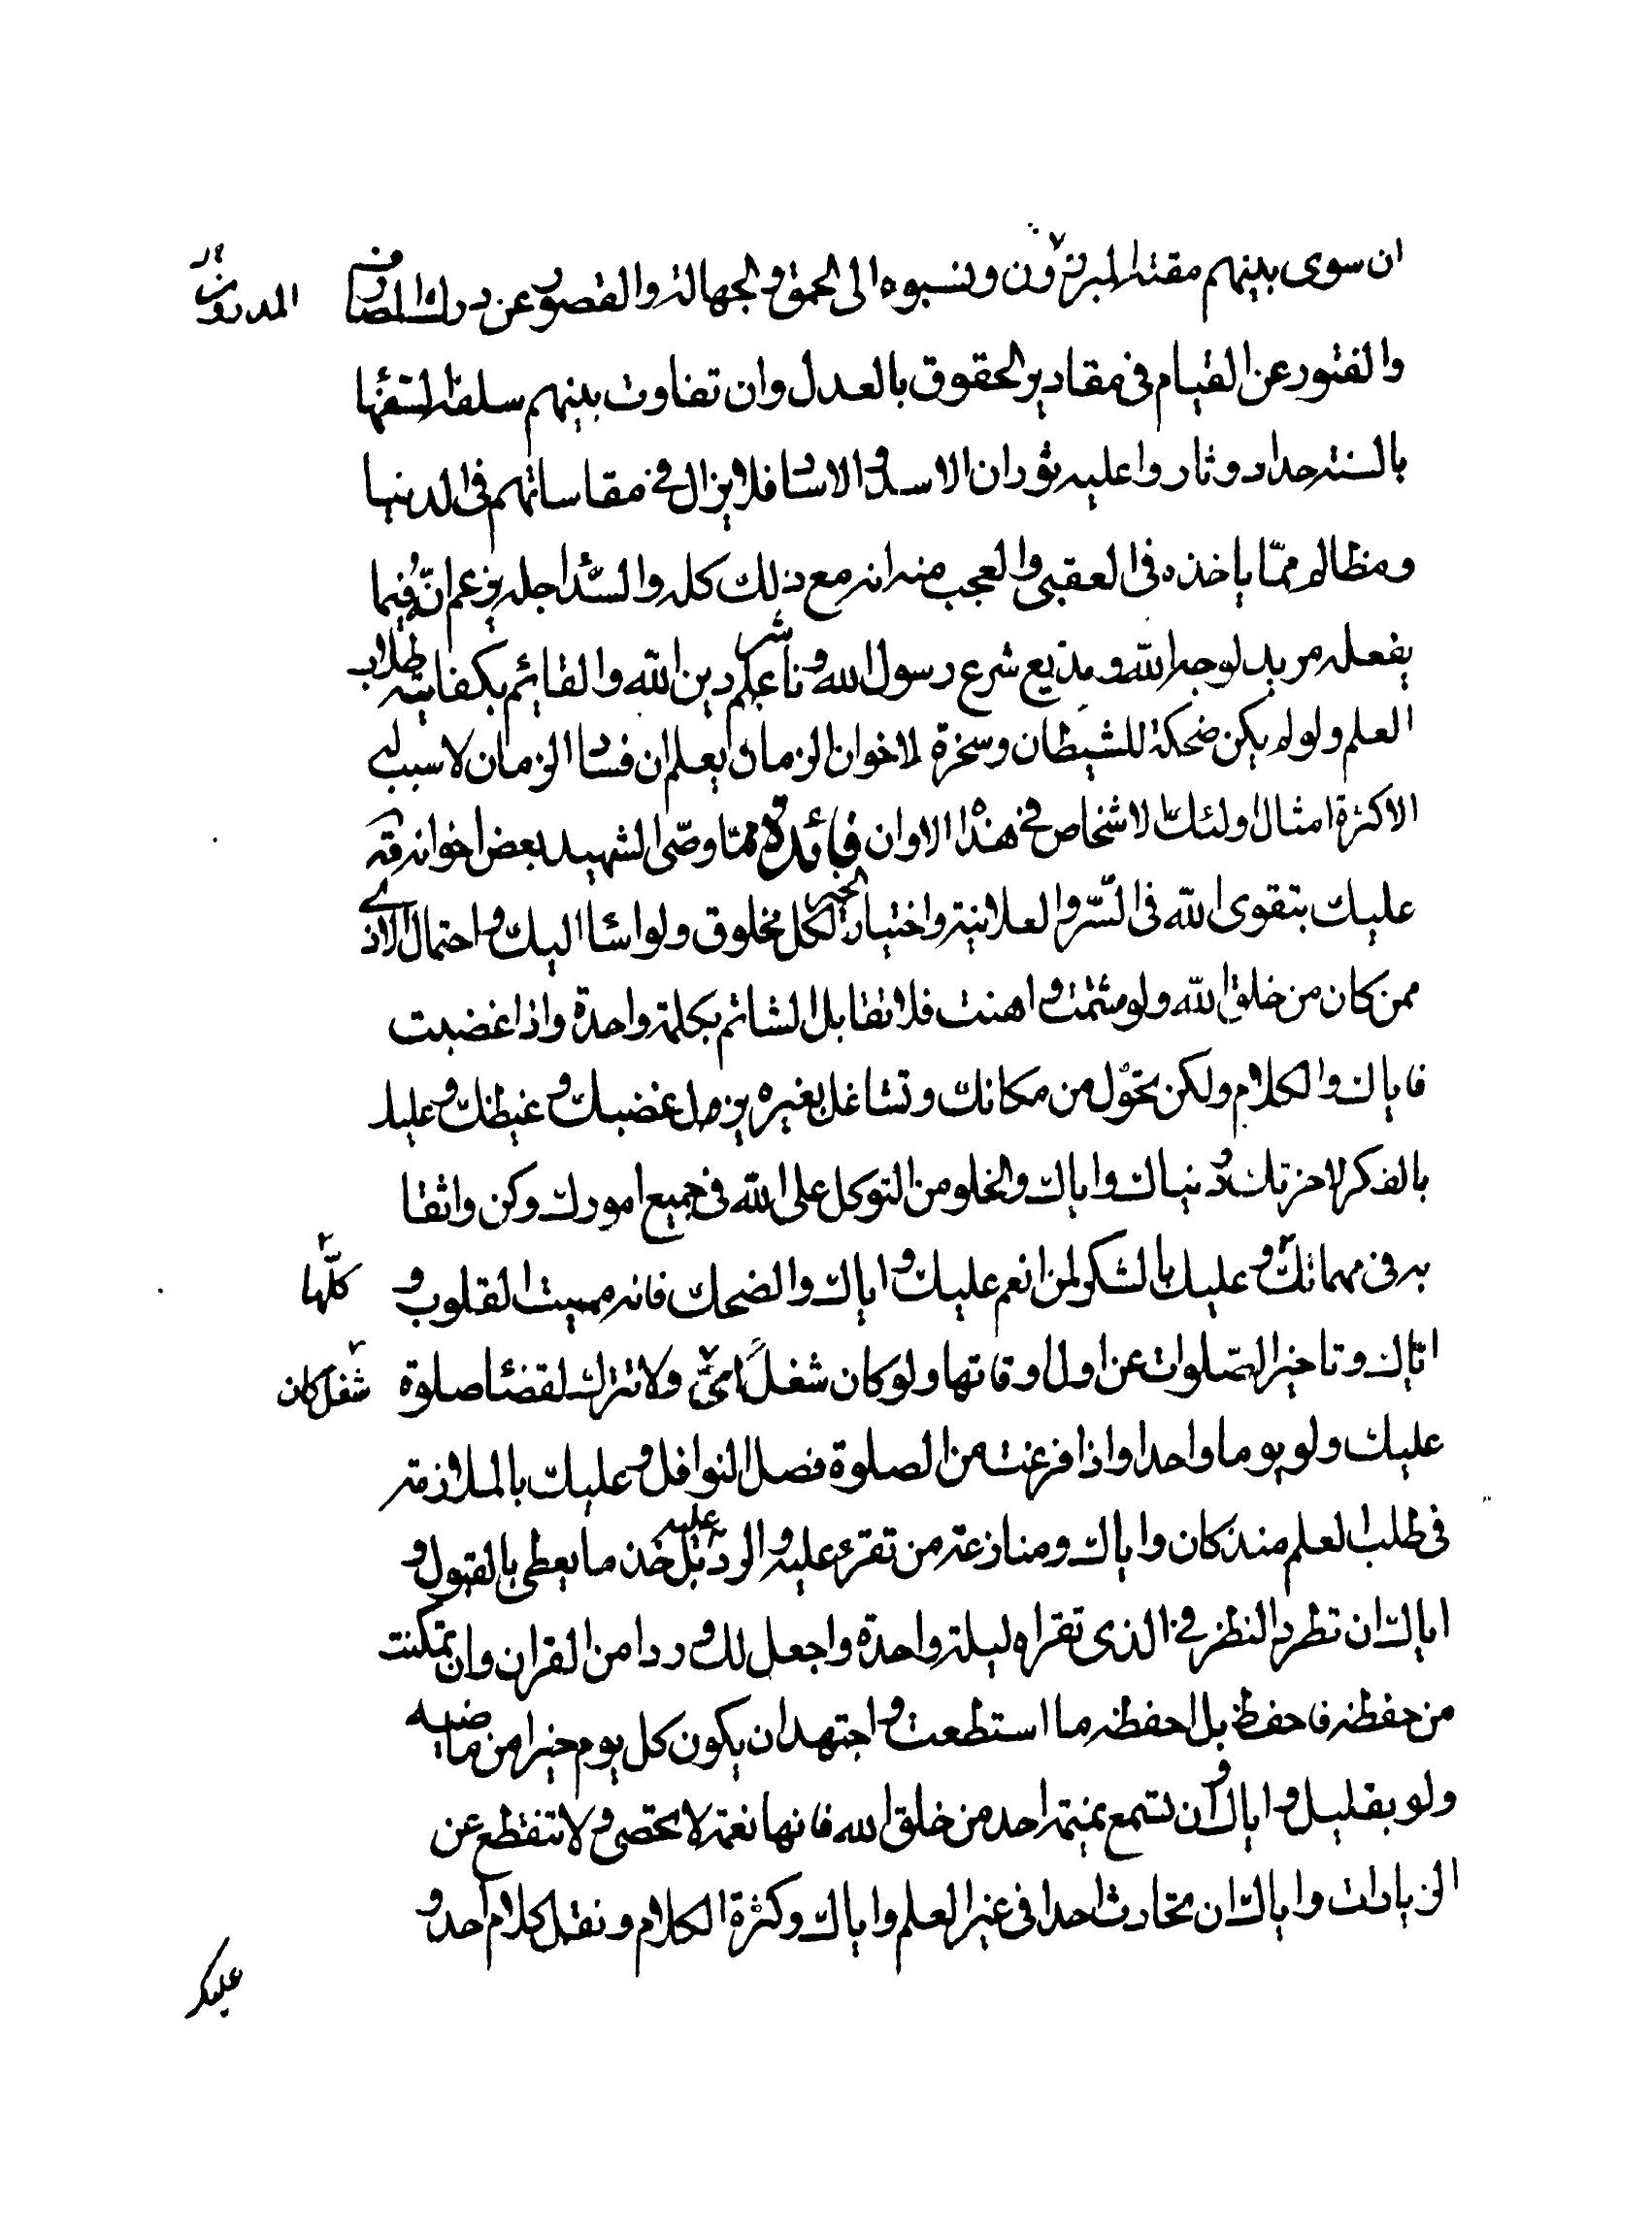 ان سوى بينهم مقته المبرزون ونسبوه الى الحمق والجهالة والقصور عن درك المصارف
والفتور عن القيام فى مقادير الحقوق بالعدل وان تفاوت بينهم سلقه السفهاء
بالسنة حداد وثاروا عليه ثوران الاساود والاساد فلا يزال فى مقاساتهم فى الدنيا
ومظالم ممّا ياخذه فى العقبى والعجب منه انه مع ذلك كله والسّداجله يزعم انّه فيما
يفعله مريد لوجه الله ومذيع شرع رسول الله وناشر علم دين الله والقائم بكفاية طلاب
العلم ولو لم يكن ضحكة للشيطان وسخرة لاخوان الزمان يعلم ان فساد الزمان لا سبب له
الا كثرة امثال اولئك الاشخاص فى هذا الاوان فائدة ممّا وصّى الشهيد بعض اخوانه قده
عليك بتقوى الله فى السّر والعلانية واختيار الخير لكل مخلوق ولو اساء اليك واحتمال الاذى
ممن كان من خلق الله ولو شتمت واهنت فلا تقابل الشاتم بكلمة واحدة واذا غضبت
فاياك والكلام ولكن تحوّل من مكانك وتشاغل بغيره يزول غضبك وغيظك وعليك
بالفكر لاخرتك ودنياك واياك والخلو من التوكل على الله فى جميع امورك وكن واثقا
به فى مهماتك وعليك بالشكر لمن انعم عليك واياك والضحك فانه مميت القلوب و
كلّها
ايّاك وتاخير الصّلوات عن اول اوقاتها ولو كان شغلًا اىّ ولا تترك لقضاء صلوة
شغل كان
عليك ولو يوما واحدا واذا فرغت من الصلوة فصل النوافل وعليك بالملازمة
فى طلب العلم منذ كان واياك ومنازعة من تقرء عليه والرد عليه بل خذ ما يعطى بالقبول و
اياك ان تطرد النظر فى الذى تقراه ليلة واحدة واجعل لك وردا من القران وان تمكنت
من حفظه فاحفظه بل احفظه ما استطعت واجتهد ان يكون كل يوم خيرا من ماضيه
ولو بقليل واياك وان تسمع نميمة احد من خلق الله فانها نغمة لا تحصى ولا تنقطع عن
الزيادات واياك ان تحادث احدا فى غير العلم واياك وكثرة الكلام ونقل كلام احد و
عليك